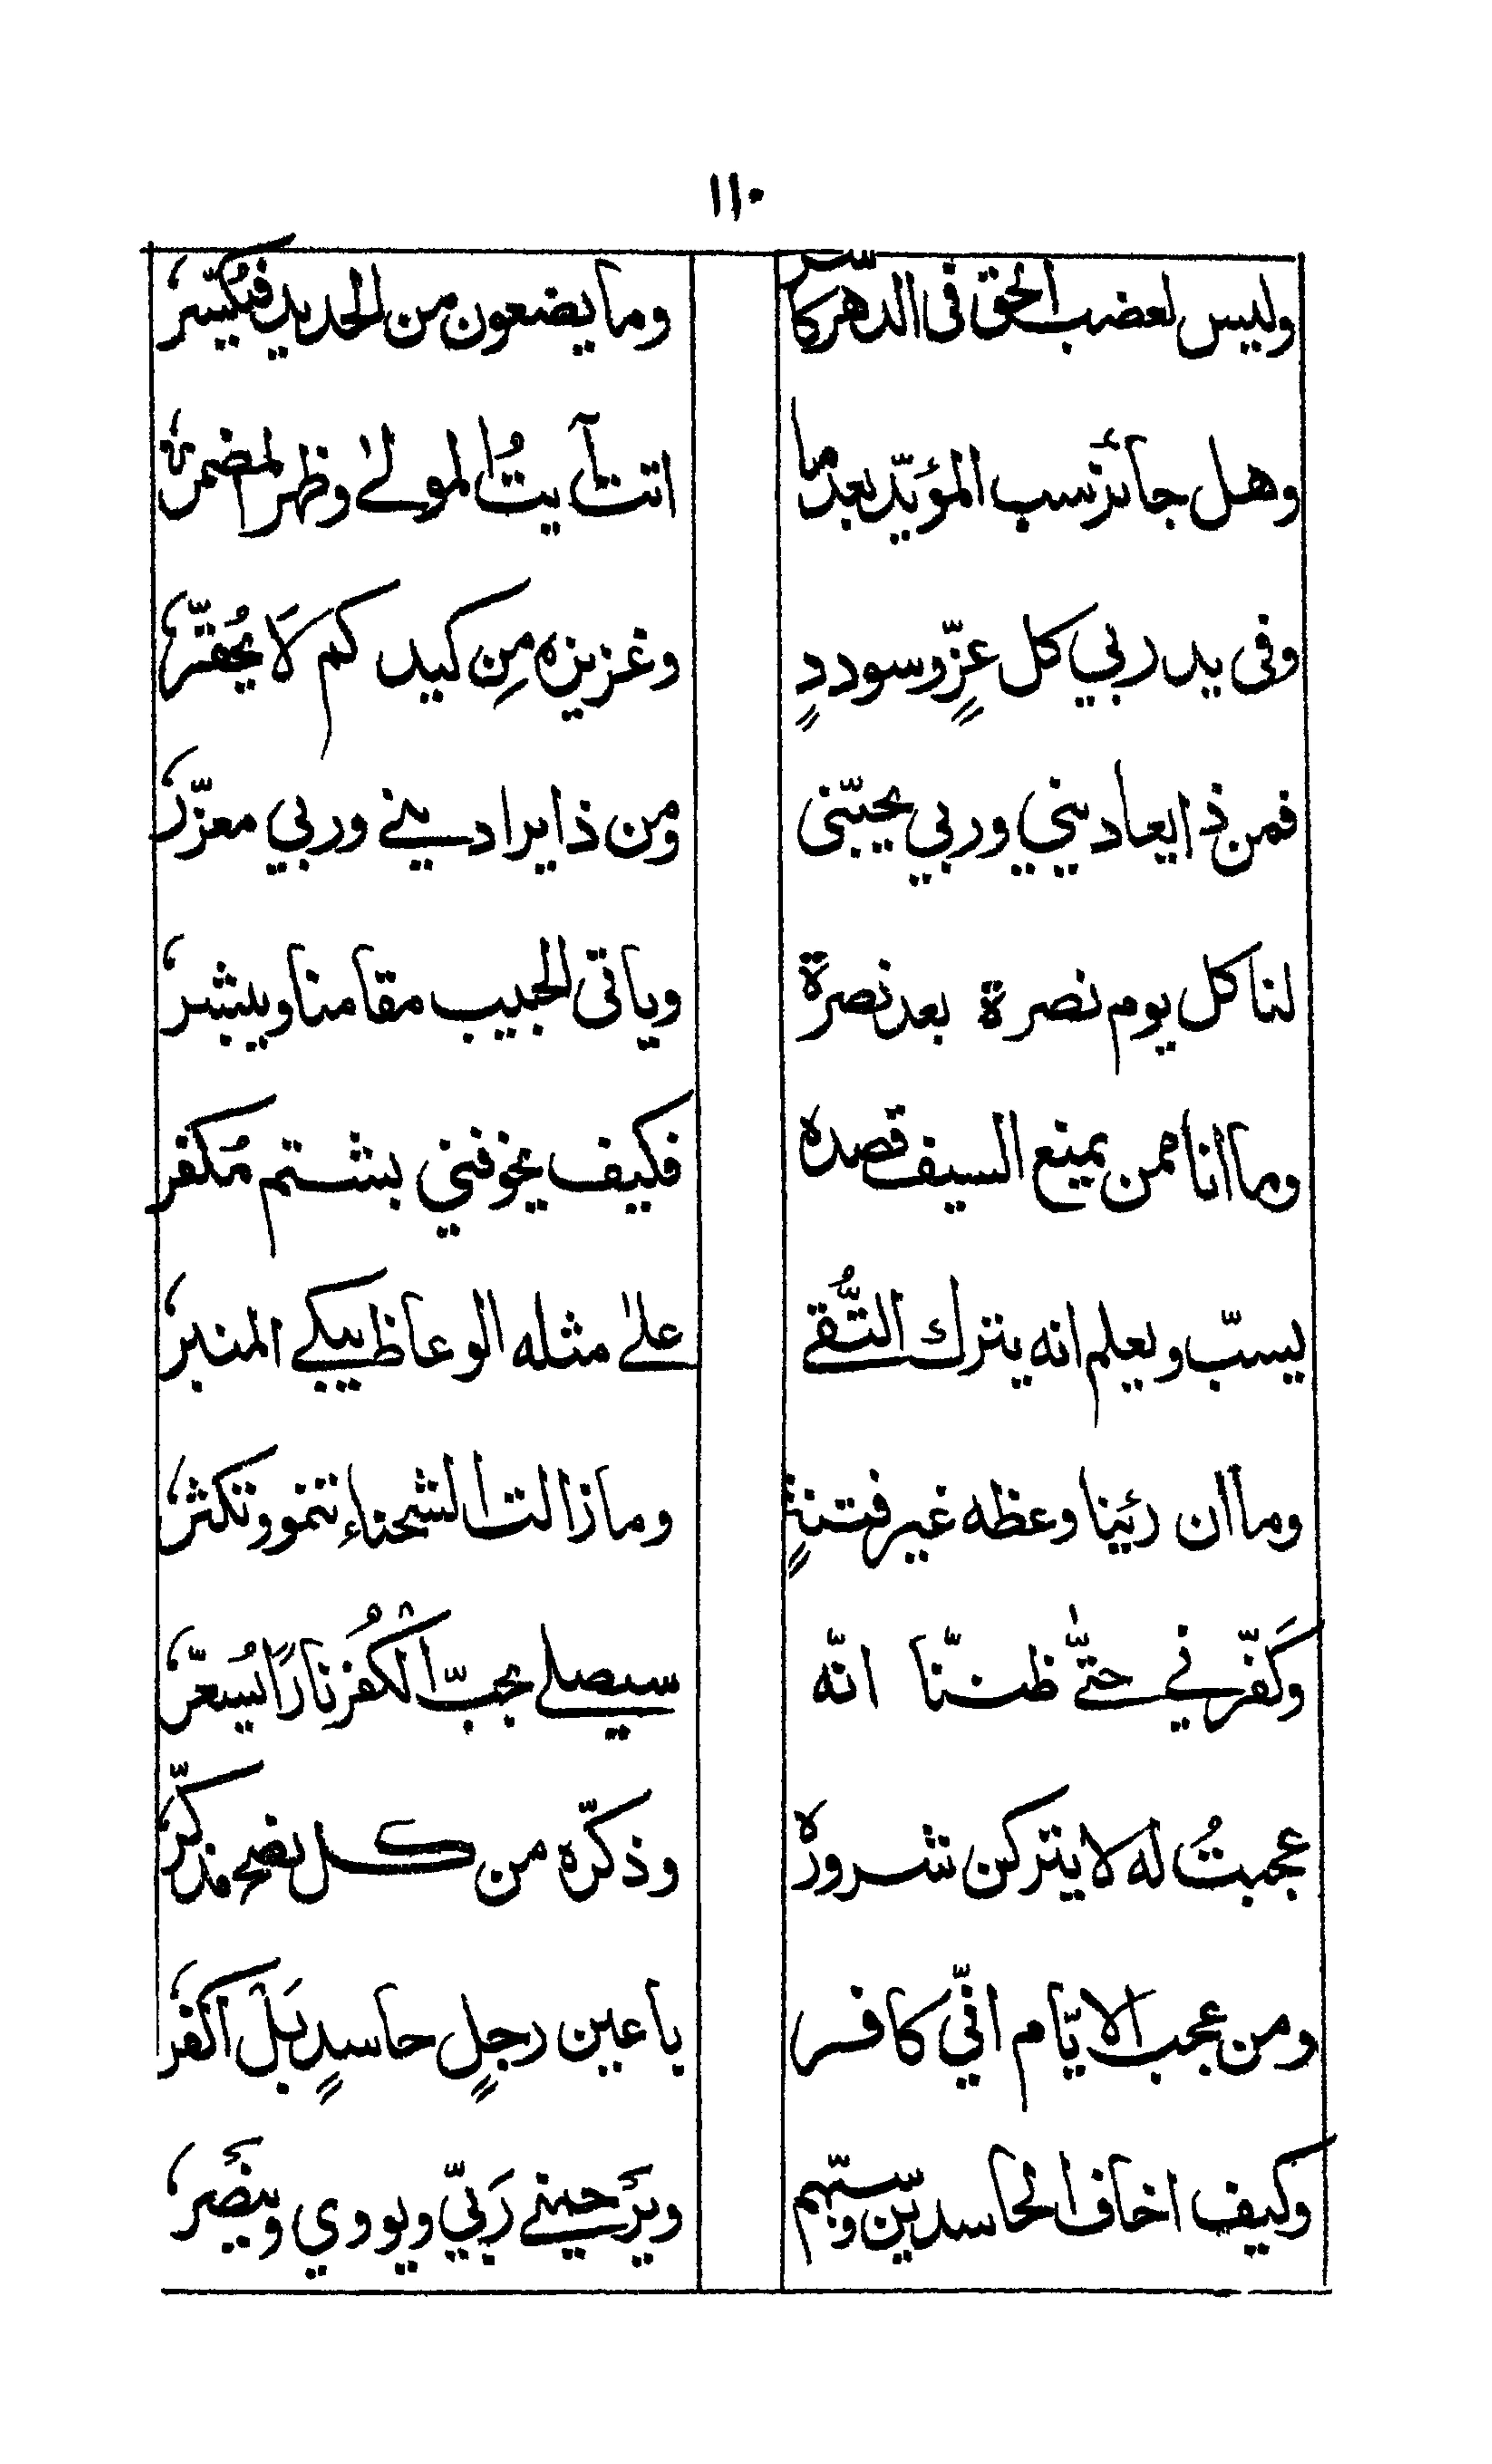 ١١٠
وليس لعضب الحق فى الدهر كاسر وما يضعون من الحديد فيُكسّر
وهل جائز سب المؤيّد بعد ما اتت آيتُ المولىٰ وظهر المضمر
وفى يد ربي كل عزٍّ وسوددٍ وغزيزه مِن كيدكم لَا يُحقّر
فمن ذا يعاديني وربي يحبّنى ومن ذا يراديني وربي معزّر
لنا كل يوم نصرة بعد نصرة وياتى الحبيب مقامنا ويبشر
وما انا ممن يمنع السيف قصده فكيف يخوفنى بشتم مُكفر
يسبّ ويعلم انه يترك التُّقى علىٰ مثله الوعاظ يبكي المنبر
وما ان رئينا وعظه غير فتنةٍ وما زالت الشحناء تنمو وتكثر
وَكفّرنى حتّٰى ظننّا انّه سيصلى بحبّ الكُفر نارًا يُسعّر
عجبتُ له لا يتركن شروره وذكّره من كل نصح مذكّر
ومن عجب الايّام انّي كافر باعين رجلٍ حاسدٍ بَلْ اكفر
وكيف اخاف الحاسدين وسبّهم ويَرحمني رَبّي ويووي وينصُر